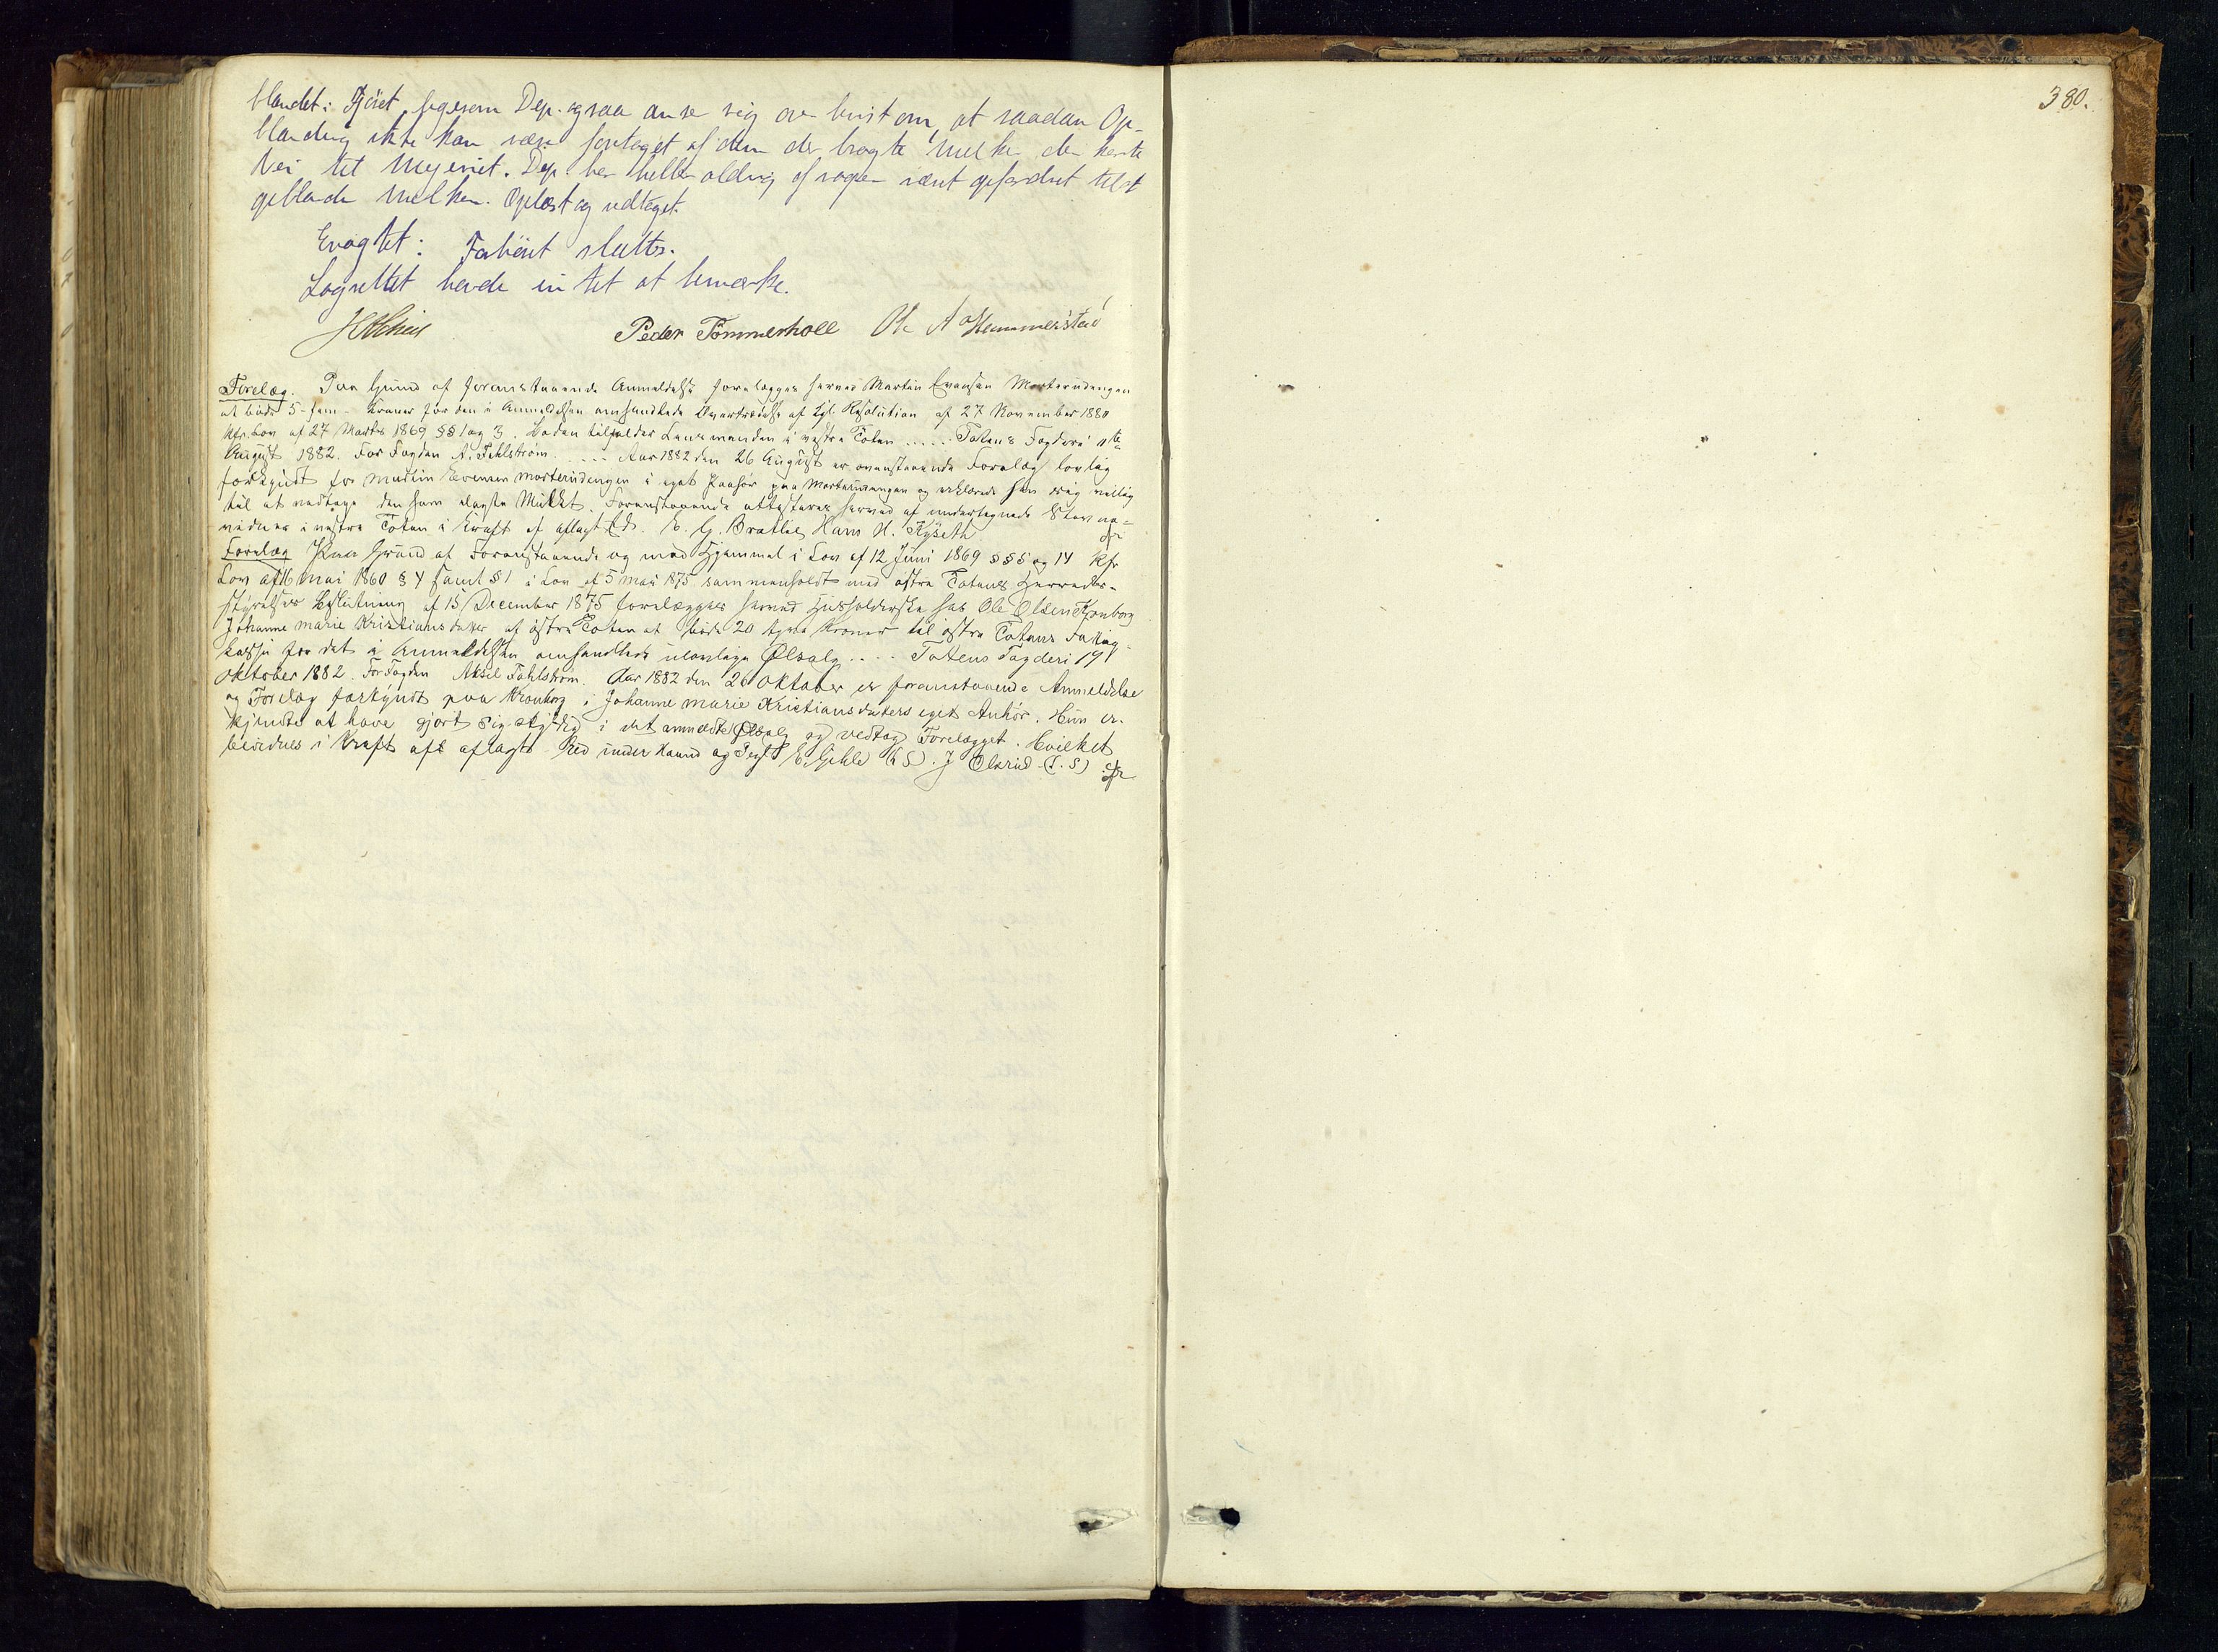 blandet i Fjöset, ligesom Dep. ogsaa anser sig overbevist om, at saadan Op-
blanding ikke kan være foretaget af dem der bragte Melken den korte
Vei til Meyeriet. Dep. har heller aldrig af nogen været opfordret til at
opblande Melken. Oplæst og vedtaget.
Eragtet: Forhöret sluttes.
Lagrettet havde intet at bemærke.
Peder Tömmerhole Ole A Hammerstad
Forelæg. Paa Grund af foranstaaende Anmeldelse forelægges herved Martin Evensen Morterudengen
at böde 5 - fem - Kroner for den i Anmeldelsen omhandlede Overtrædelse af Kgl. Resolution af 27 November 1880
kfr. Lov af 27 Marts 1869 §§ 1 og 3. Boden tilfalder Lensmanden i vestre Toten ..... Totens Fogderi
August 1882. For Fogden A. Fahlström ..... Aar 1882 den 26 August er ovenstaaende Forelæg lovlig
forkyndt for Martin Evensen Morterudengen i eget Paahör paa Morterudengen og erklærede han sig villig
til at vedtage den ham ilagte Mulkt. Foranstaaende attesteres herved af undertegnede Stævne-
vidner i vestre Toten i Kraft af aflagt Ed. E. G. Bratlie, Hans H. Kyseth
Forelæg Paa Grund af Foranstaaende og med Hjemmel i Lov af 12 Juni 1869 §§ 5 og 14 kfr
Lov af 16 mai 1860 § 4 samt § 1 i Lov af 5 mai 1875 sammenholdt med östre Totens Herreds-
styrelses Beslutning af 15 December 1875 forelægges herved Husholderske hos Ole Olsen Kronborg
Johanne marie Kristiansdatter af östre Toten at böde 20 tyve Kroner til östre Totens Fattig-
kasse for det i Anmeldelsen omhandlede ulovlige Ölsalg .... Totens Fogderi 19
oktober 1882. For Fogden Aksel Fahlström. Aar 1882 den 26 Oktober er foranstaaende Anmeldelse
og Forelæg forkyndt paa Kronborg i Johanne marie Kristiansdatters eget Anhör. Hun er-
kjendte at have gjort sig skyldig i det anmeldte Ölsalg og vedtog Forelægget. Hvilket
bevidnes i Kraft af aflagte Eed under Haand og Segl E. Gihle (L S). J Ölsrud (L. S)
380.